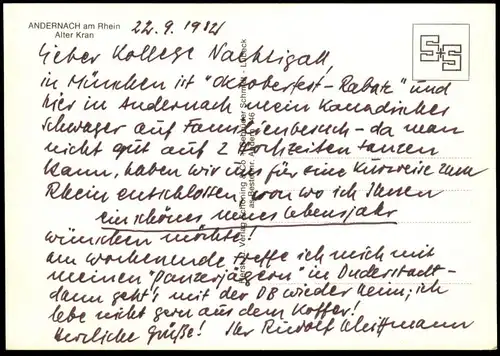 ANDERNACH am Rhein
Alter Kran
22.9.1982
S+S
Lieber Kollege Nachtigall!
in München ist "Oktoberfest-Rabatz" und
hier in Andernach mein Kanadischer
Schwager auf Familienbesuch - da man
nicht gut auf 2 Hochzeiten tanzen
kann, haben wir uns für eine Kurreise zum
Rhein entschlossen, von wo ich Ihnen
ein schönes neues Lebensjahr
wünschen möchte!
am Wochenende treffe ich mich mit
meinen "Panzerjägern" in Duderstadt-
dann geht's mit der DB wieder heim; ich
lebe nicht gern aus dem Koffer!
Herzliche Grüße! Ihr Rudolf
Verlag Schöning & Co Gebrüder Schmidt - Lübeck